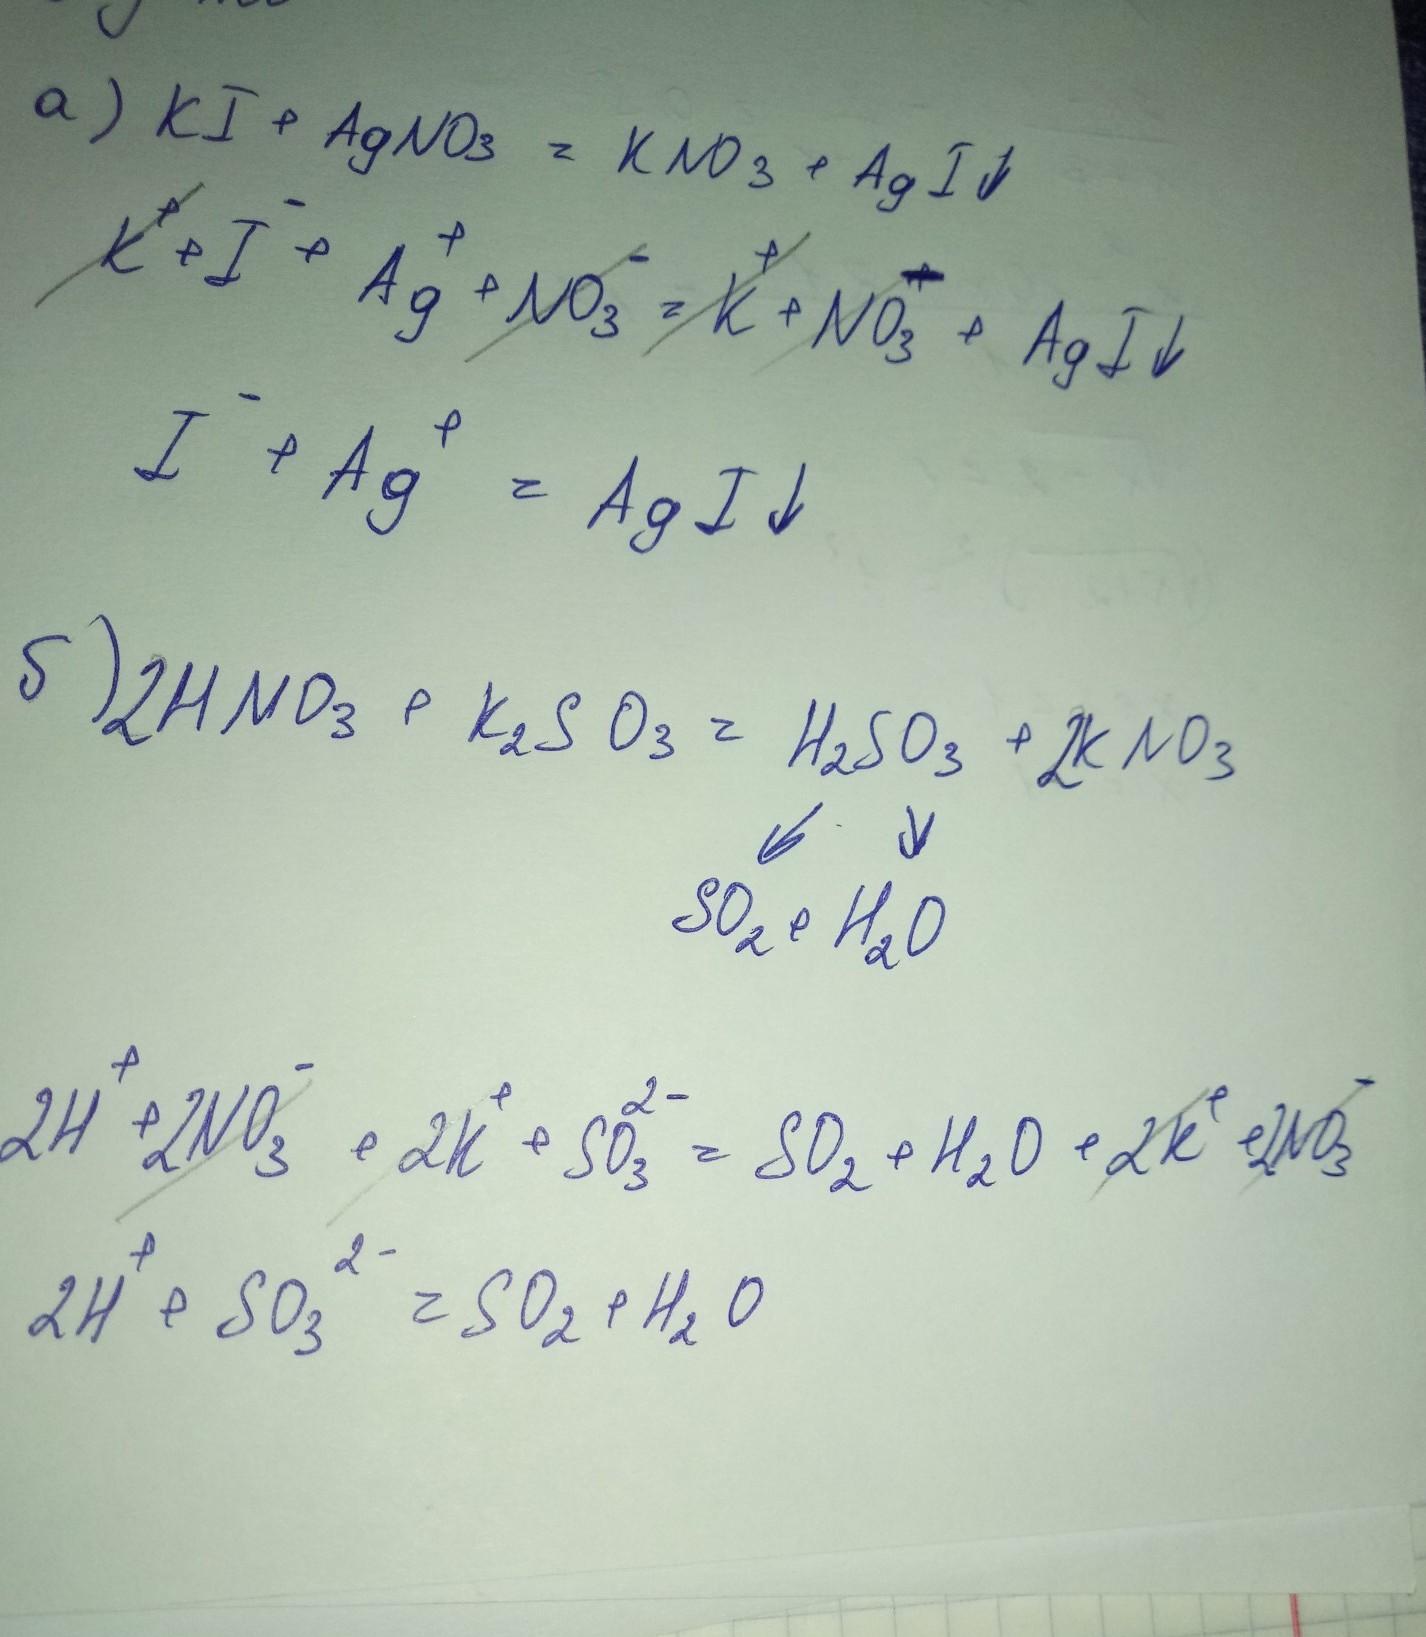 а) KI + AgNO₃ = KNO₃ + AgI↓
K⁺ + I⁻ + Ag⁺ + NO₃⁻ = K⁺ + NO₃⁻ + AgI↓
I⁻ + Ag⁺ = AgI↓
б) 2HNO₃ + K₂SO₃ = H₂SO₃ + 2KNO₃
↙ ↓
SO₂ + H₂O
2H⁺ + 2NO₃⁻ + 2K⁺ + SO₃²⁻ = SO₂ + H₂O + 2K⁺ + 2NO₃⁻
2H⁺ + SO₃²⁻ = SO₂ + H₂O